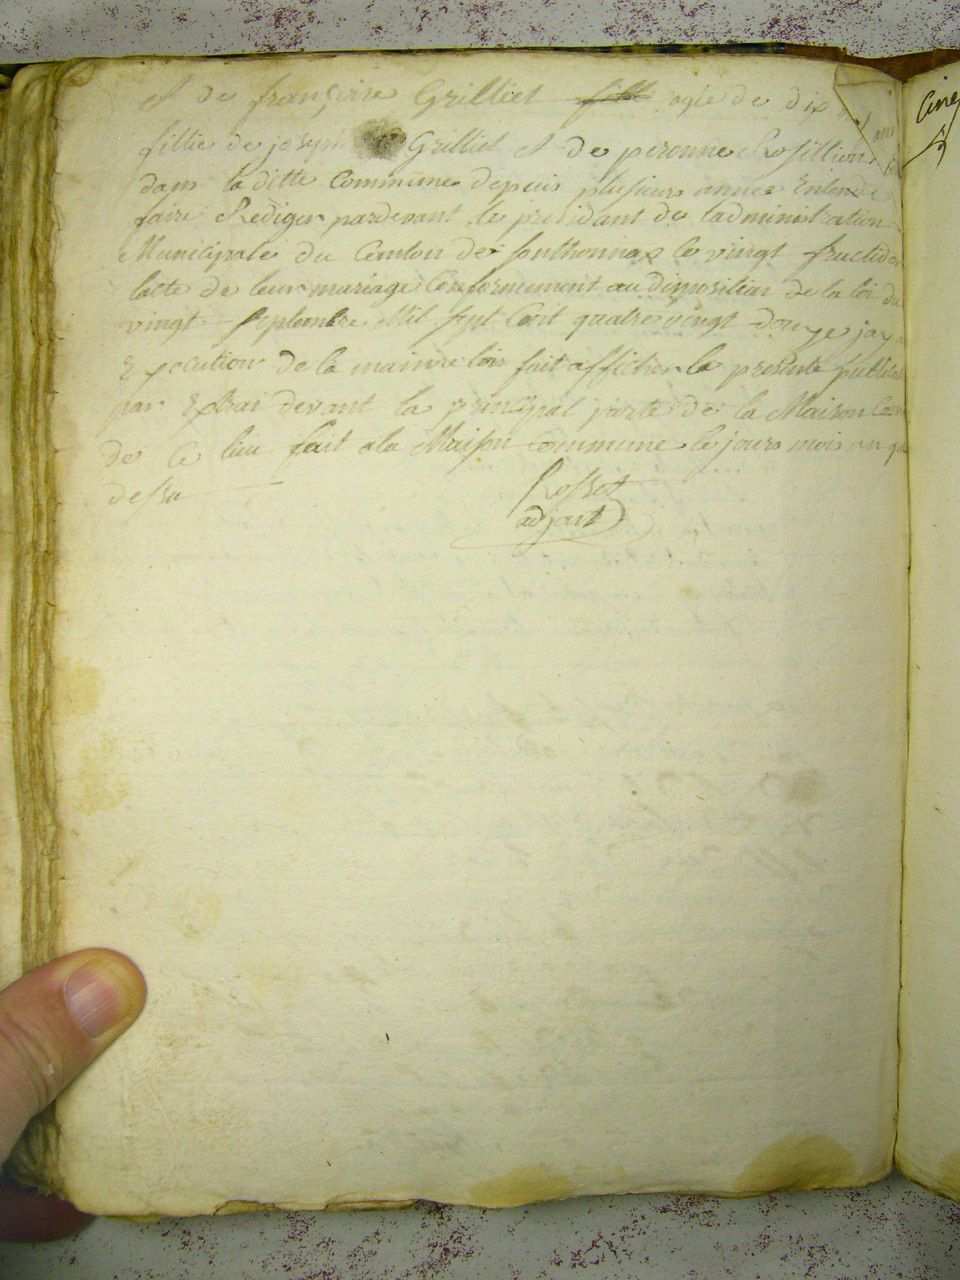 et de françoise Grilliet fille agée de dix
fillie de joseph Grilliet et de peronne Rosillion
dans laditte Commune depuis plusieurs année Entende
faire Rediger pardevant le président de ladministration
Municipale du Canton de Sonthonnax le vingt fructidor
lacte de leur mariage Conformement au disposition de la loi du
vingt Septembre Mil Sept Cent quatre vingt douze jay
Execution de la maime lois fait afficher la presente publica
par Extrai devant la principal porte de la Maison Com
de Ce lieu fait ala Maison Commune le jours mois an que
dessu
Rosset
adjoint